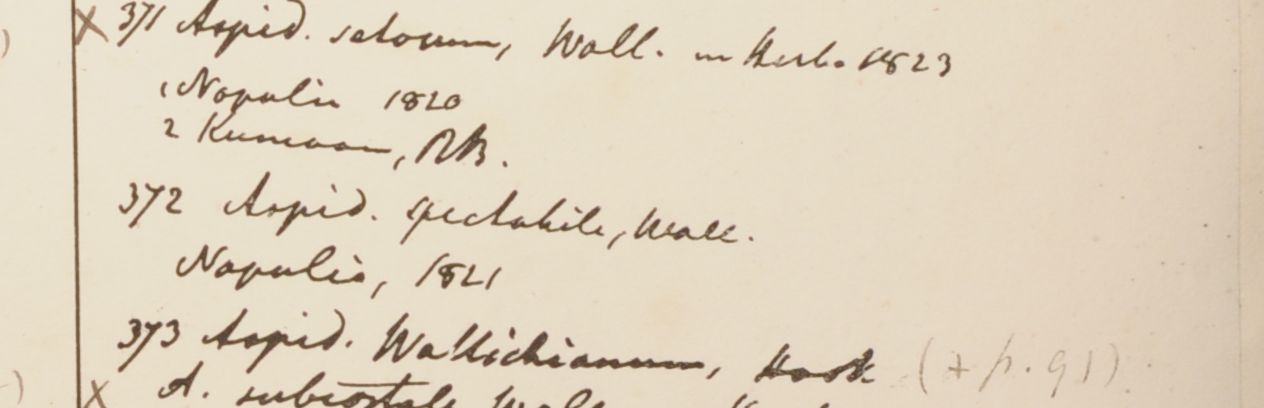 X 371 Aspid. setosum, Wall. in Herb. 1823
1 Napalia 1820
2 Kumaon, RB.
372 Aspid. spectabile, Wall.
Napalia, 1821
373 Aspid. Wallichianum, Hook (+ p. 91)
X A. subcostale Wall